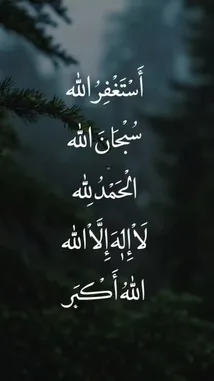 أَسْتَغْفِرُ الله
سُبْحَانَ الله
الْحَمْدُ لِلّٰه
لَا إِلٰهَ إِلَّا الله
اللهُ أَكْبَر